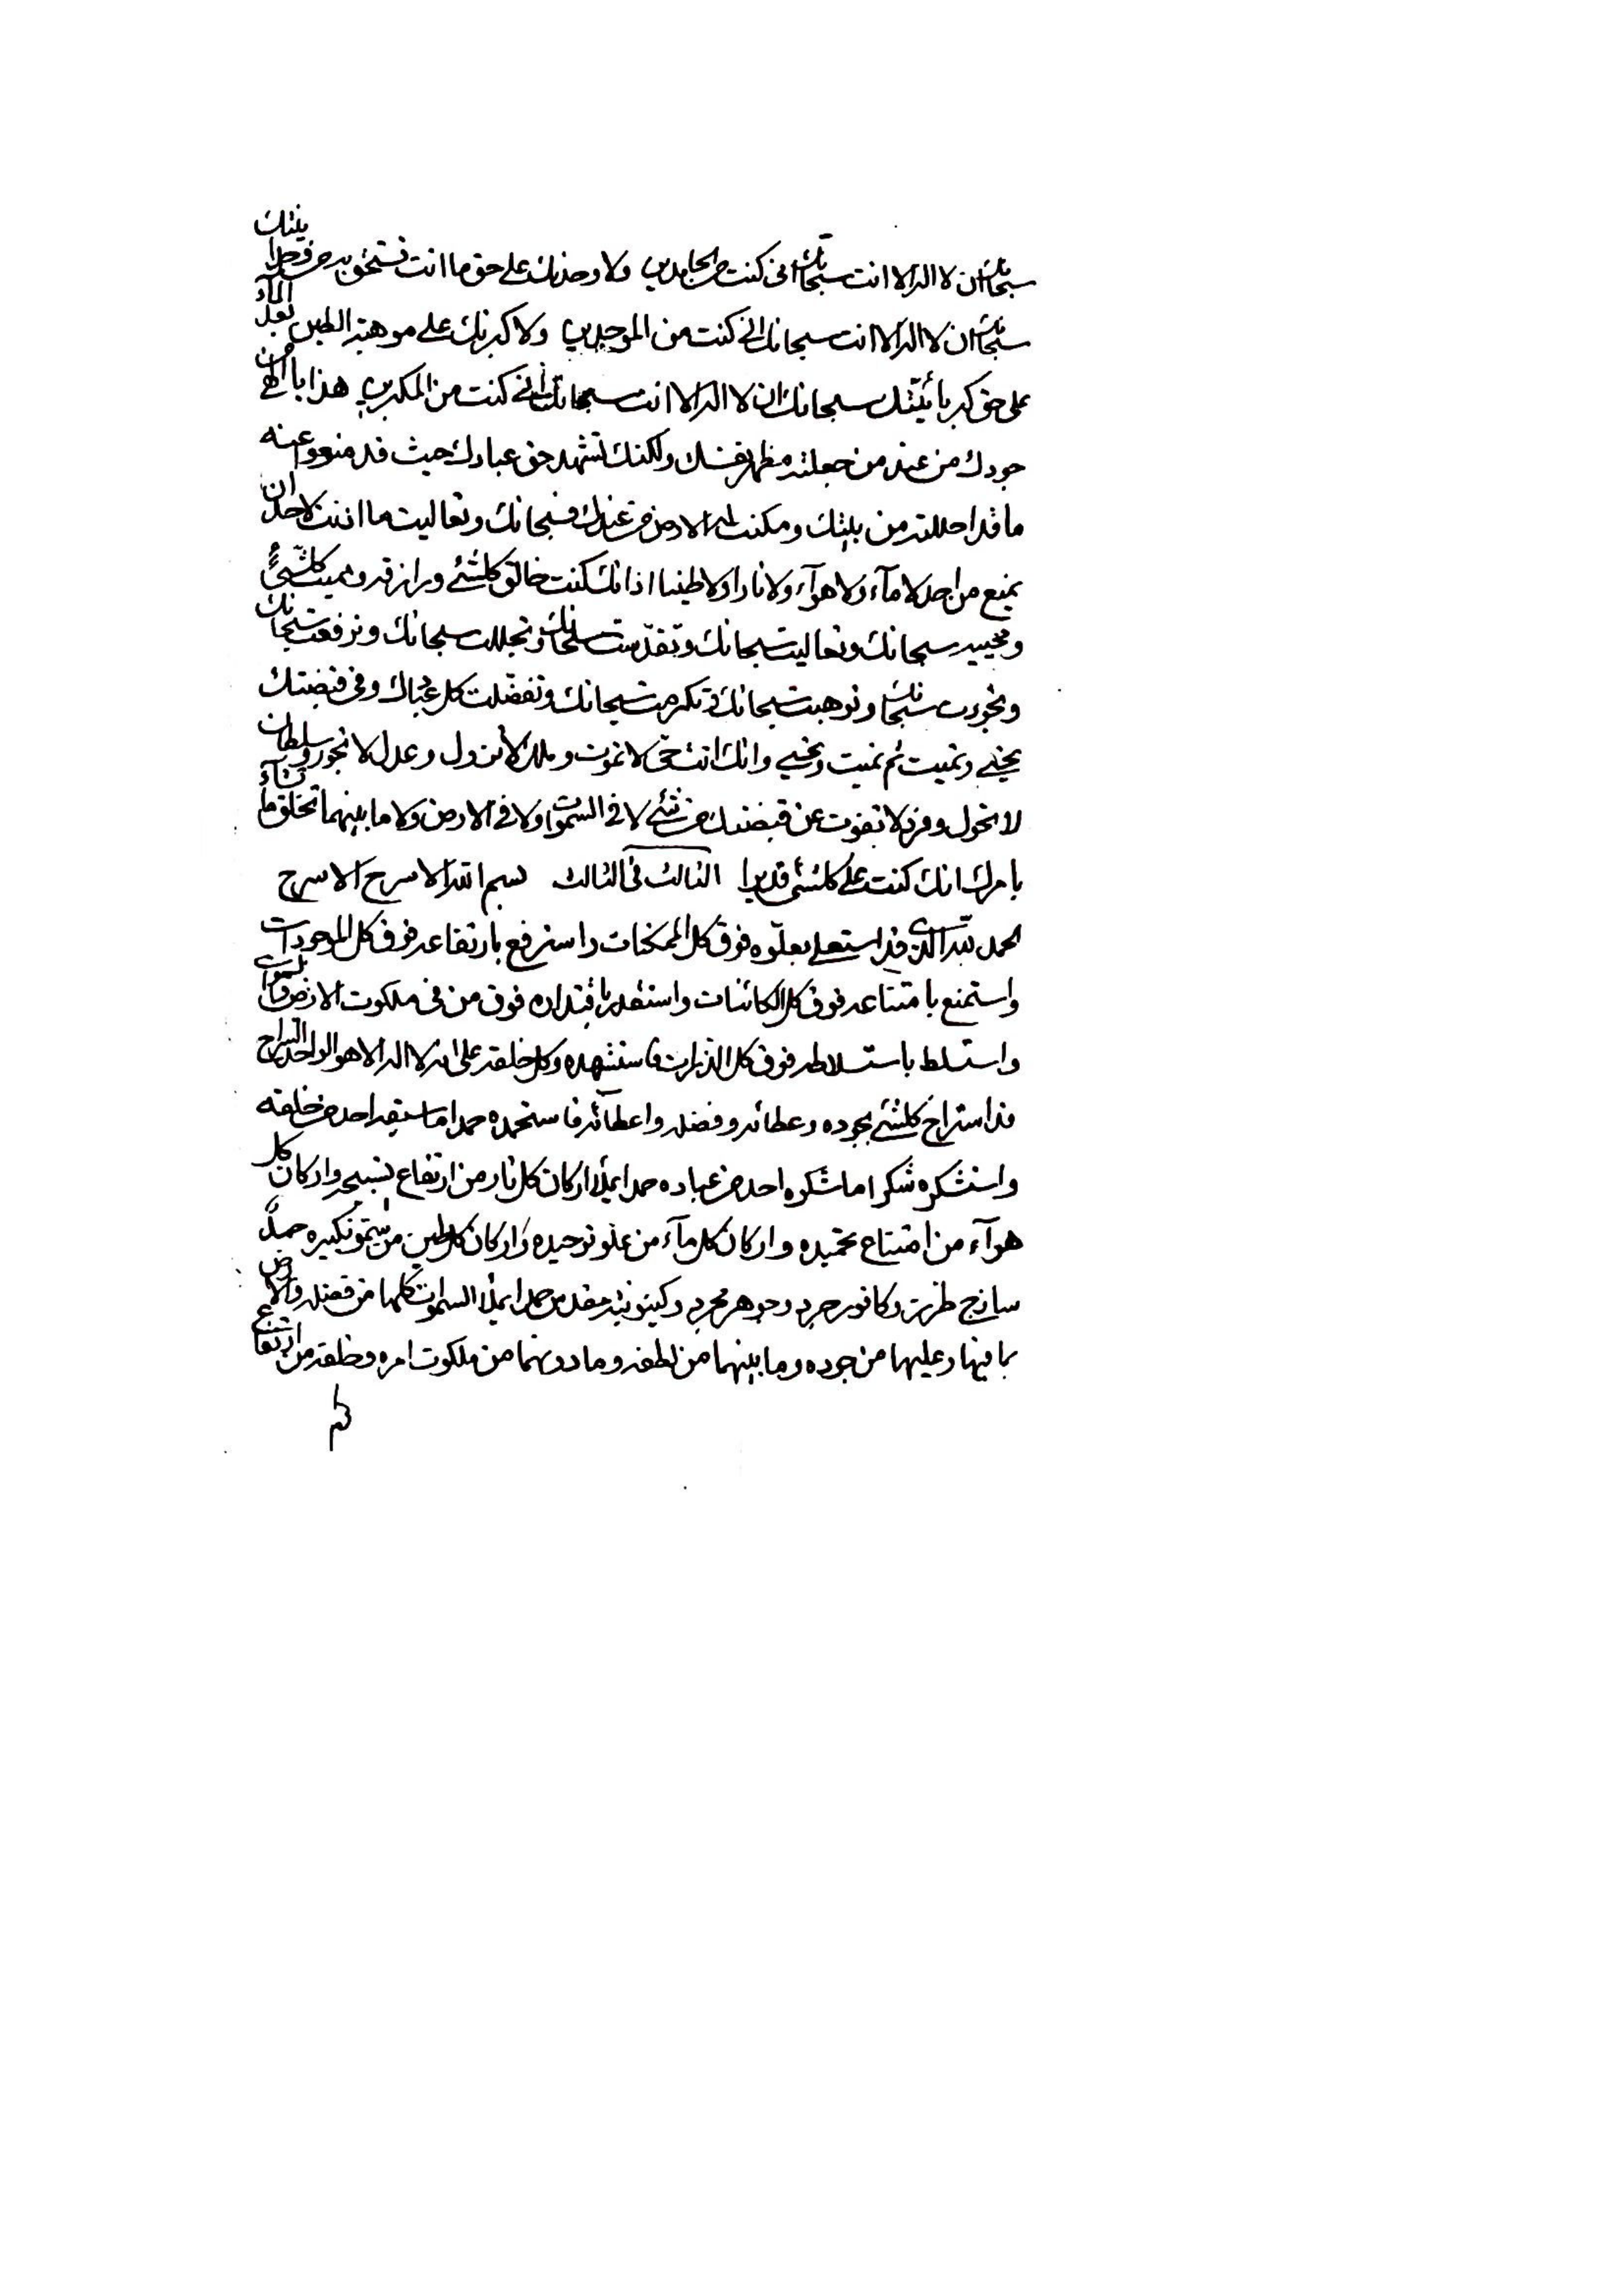 سبحانك ان لا اله الا انت سبحانك انى كنت من الحامدين ولاوحدنك على حق ما انت تستحق به من وحدانيتك
سبحانك ان لا اله الا انت سبحانك انى كنت من الموحدين ولاكبرنك على موهبة الطين بعد الماء
على حق كبريائيتك سبحانك ان لا اله الا انت سبحانك انى كنت من المكبرين هذا يا الهى من
جودك من عند من جعلته مظهر نفسك ولكنك تشهد حق عبادك حيث قد منعوا عنه
ما قد احللته من بيتك ومكنت له الارض من عندك فسبحانك وتعاليت ما اذنت لاحد ان
يمنع من احد لا مآء ولا هوآء ولا نارا ولا طينا اذ انك كنت خالق كلشئ ورازقه ومميت كلشئ
ومحييه سبحانك وتعاليت سبحانك وتقدست سبحانك وتجللت سبحانك وترفعت سبحانك
وتجودت سبحانك وتوهبت سبحانك وتكرمت سبحانك وتفضلت كل عبادك وفى قبضتك
تحيى وتميت ثم تميت وتحيى وانك انت حى لا تموت وملك لا تزول وعدل لا تجور وسلطان
لا تحول وفرد لا تفوت عن قبضتك من شئ لا فى السموات ولا فى الارض ولا ما بينهما تخلق ما تشآء
بامرك انك كنت على كلشئ قديرا الثالث فى الثالث بسم الله الاسرج الاسرج
الحمد لله الذى قد استعلى بعلوه فوق كل الممكنات واسترفع بارتفاعه فوق كل الموجودات
واستمنع بامتناعه فوق كل الكائنات واستقدر باقتداره فوق من فى ملكوت الارض والسموات
واستسلط باستسلاطه فوق كل الذرات فاستشهده وكل خلقه على انه لا اله الا هو الواحد السراج
قد استراج كلشئ بجوده وعطائه وفضله واعطائه فاستحمده حمدا ما سبقه احد من خلقه
واستشكره شكرا ما شكره احد من عباده حمدا يملأ اركان كل نار من ارتفاع تسبيحه واركان كل
هوآء من امتناع تحميده واركان كل مآء من علو توحيده واركان كل طين من سمو تكبيره حمدا
ساذج طرزت وكافور جرد وجوهر مجرد وكينونية مقدس حمدا يملأ السموات كلها من فضله والارض
بما فيها وعليها من جوده وما بينهما من لطفه وما دونهما من ملكوت امره وخلقه من ارتفاع